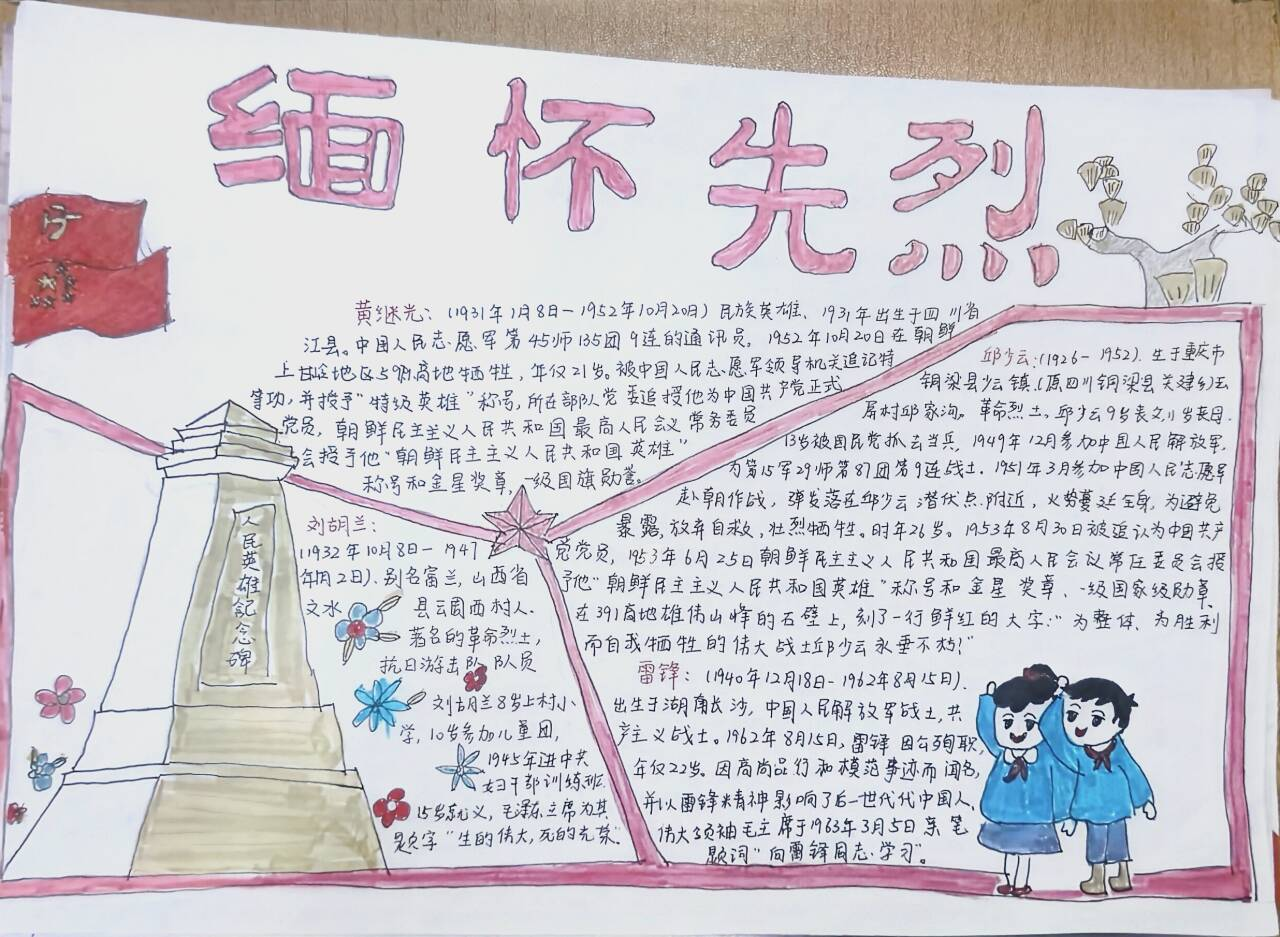 缅怀先烈
黄继光：（1931年1月8日—1952年10月20日）民族英雄、1931年出生于四川省
江县。中国人民志愿军第45师135团9连的通讯员，1952年10月20日在朝鲜
上甘岭地区597.9高地牺牲，年仅21岁。被中国人民志愿军领导机关追记特
等功，并授予“特级英雄”称号，所在部队党委追授他为中国共产党正式
党员，朝鲜民主主义人民共和国最高人民会议常务委员
会授予他“朝鲜民主主义人民共和国英雄”
称号和金星奖章，一级国旗勋章。
邱少云：（1926—1952）．生于重庆市
铜梁县少云镇（原四川铜梁县关建乡）玉
屏村邱家沟。革命烈士，邱少云9岁丧父11岁丧母．
13岁被国民党抓去当兵，1949年12月参加中国人民解放军，
为第15军29师第87团第9连战士．1951年3月参加中国人民志愿军
赴朝作战，弹发落在邱少云潜伏点附近，火势蔓延全身，为避免
暴露，放弃自救，壮烈牺牲。时年26岁。1953年8月30日被追认为中国共产
党党员，1953年6月25日朝鲜民主主义人民共和国最高人民会议常任委员会授
予他“朝鲜民主主义人民共和国英雄”称号和金星奖章、一级国家级勋章．
在391高地雄伟山峰的石壁上，刻了一行鲜红的大字：“为整体、为胜利
而自我牺牲的伟大战士邱少云永垂不朽！”
刘胡兰：
（1932年10月8日—1947
年1月2日）．别名富兰，山西省
文水县云周西村人．
著名的革命烈士，
抗日游击队队员
刘胡兰8岁上村小
学，10岁参加儿童团，
1945年进中共
妇干部训练班．
15岁就义，毛泽东主席为其
题字“生的伟大，死的光荣”
雷锋：（1940年12月18日—1962年8月15日）．
出生于湖南长沙，中国人民解放军战士，共
产主义战士。1962年8月15日，雷锋因公殉职，
年仅22岁。因高尚品行和模范事迹而闻名，
并以雷锋精神影响了后一世代代中国人、
伟大领袖毛主席于1963年3月5日亲笔
题词“向雷锋同志学习”。
人民英雄纪念碑